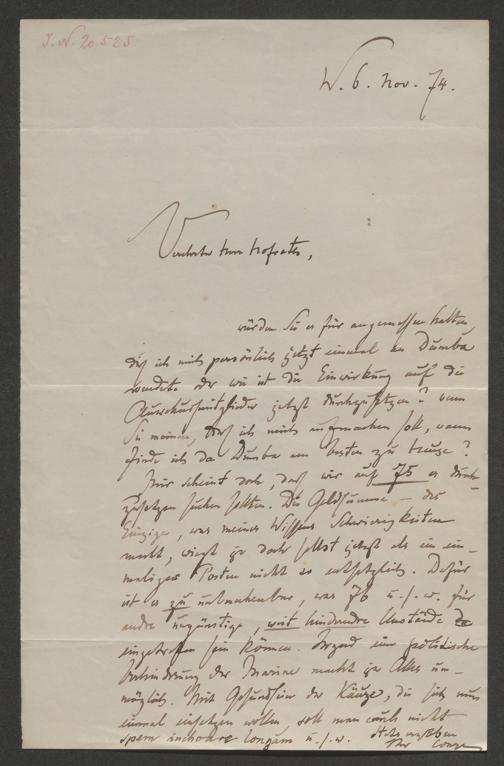 J.N. 20.525
W. 6. Nov. 74.
Verehrter Herr Hofrath,
würden Sie es für angemessen halten
daß ich mich persönlich jetzt einmal an Dumba
wendete oder wie ist die Einwirkung auf die
Ausschußmitglieder jetzt durchzusetzen? wenn
Sie meinen, daß ich mich aufmachen soll, wann
finde ich da Dumba am besten zu Hause?
Mir scheint doch, daß wir auf 75 es durch-
zusetzen suchen sollten. Die Geldsumme – das
Einzige, was meines Wissens Schwierigkeiten
macht, wiegt ja doch selbst jetzt als ein ein-
maliger Posten nicht so entsetzlich. Dafür
ist es zu unberechenbar, was 76 u.s.w. für
andre ungünstige, weit hindernde Umstände
eingetroffen sein können. Irgend eine politische
Behinderung der Marine macht ja Alles un-
möglich. Mit der die sich nun
einmal einsetzen wollen, soll man auch nicht
spem inchoare longam u.s.w. Hochergeben
Ihr Conze